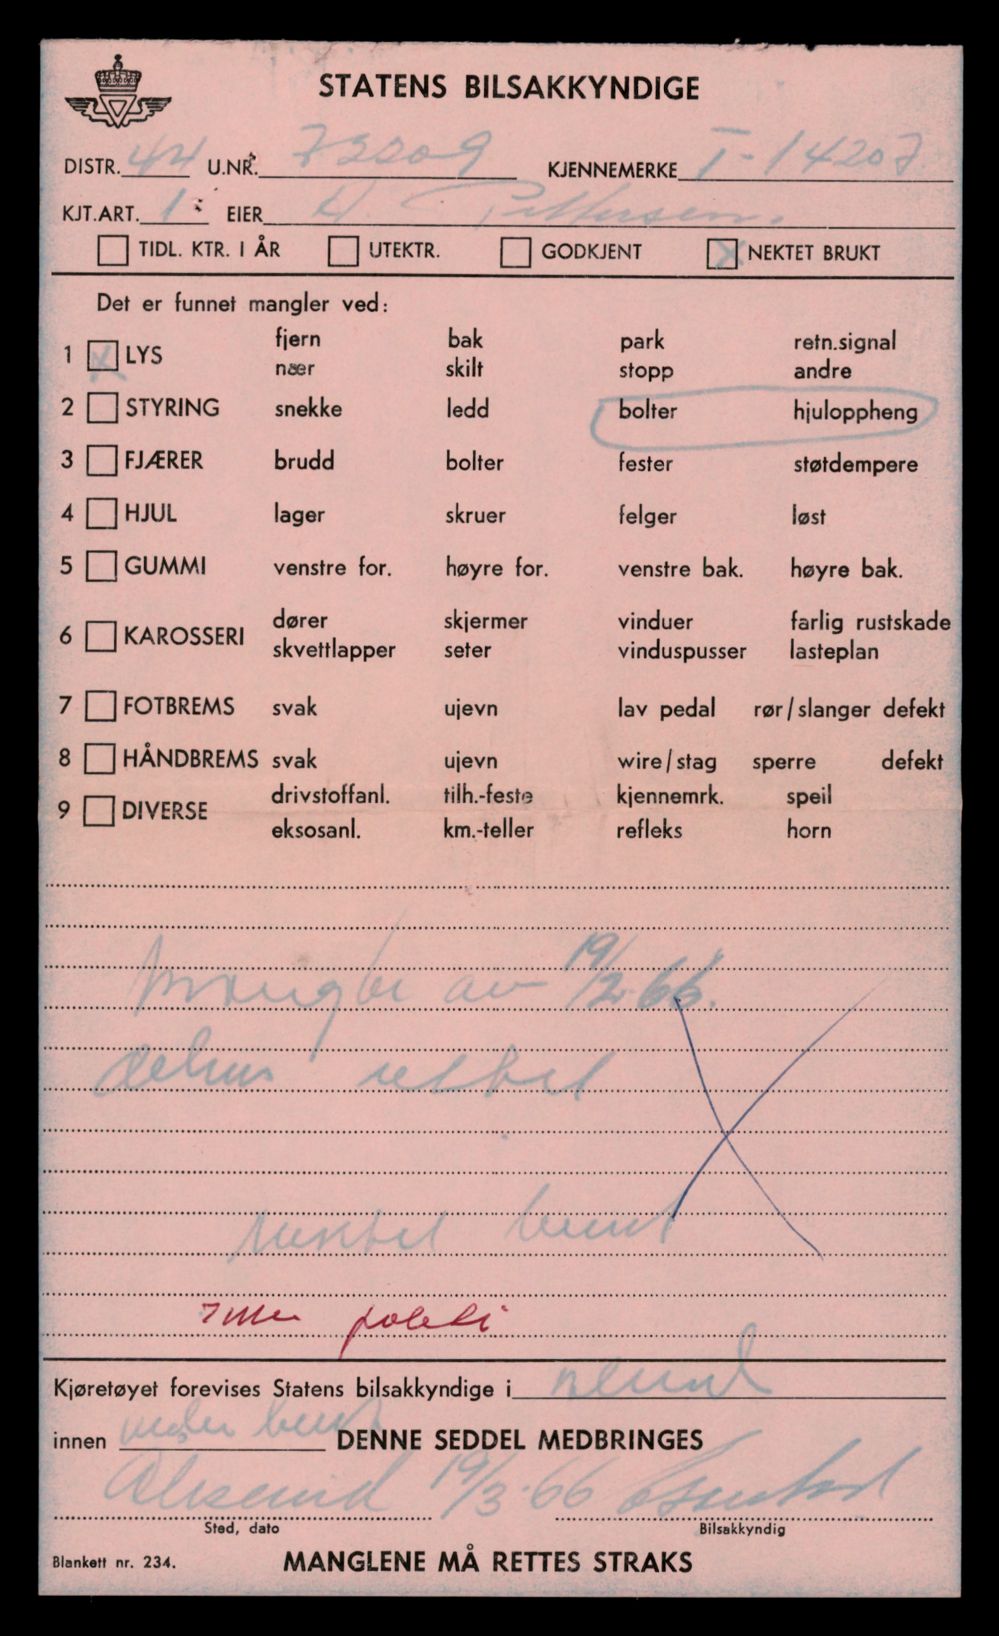 STATENS BILSAKKYNDIGE
DISTR. 44 U.NR. 73209 KJENNEMERKE T-14207
KJT.ART. 1 EIER H. Pettersen.
TIDL. KTR. I ÅR UTEKTR. GODKJENT X NEKTET BRUKT
Det er funnet mangler ved:
fjern bak park retn.signal
1 X LYS
nær skilt stopp andre
2 STYRING snekke ledd bolter hjuloppheng
3 FJÆRER brudd bolter fester støtdempere
4 HJUL lager skruer felger løst
5 GUMMI venstre for. høyre for. venstre bak. høyre bak.
dører skjermer vinduer farlig rustskade
6 KAROSSERI
skvettlapper seter vinduspusser lasteplan
7 FOTBREMS svak ujevn lav pedal rør/slanger defekt
8 HÅNDBREMS svak ujevn wire/stag sperre defekt
drivstoffanl. tilh.-feste kjennemrk. speil
9 DIVERSE
eksosanl. km.-teller refleks horn
Mangler av 19/2-66.
delvis utbet
Nektet brukt
Kjøretøyet forevises Statens bilsakkyndige i
innen DENNE SEDDEL MEDBRINGES
Ålesund 19/3-66
Sted, dato Bilsakkyndig
Blankett nr. 234. MANGLENE MÅ RETTES STRAKS